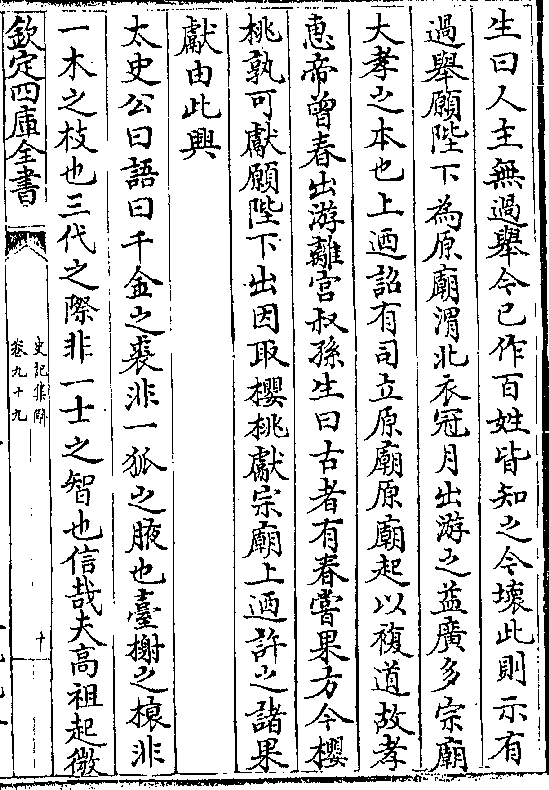 生曰人主無過舉今已作百姓皆知之今壞此則示有
過舉願陛下為原廟渭北衣冠月出游之益廣多宗廟
大孝之本也上迺詔有司立原廟原廟起以複道故孝
惠帝曾春出游離宫叔孫生曰古者有春嘗果方今櫻
桃孰可獻願陛下出因取櫻桃獻宗廟上迺許之諸果
獻由此興
太史公曰語曰千金之裘非一狐之腋也臺榭之榱非
一木之枝也三代之際非一士之智也信哉夫高祖起微
欽定四庫全書
史記集解
卷九十九
十